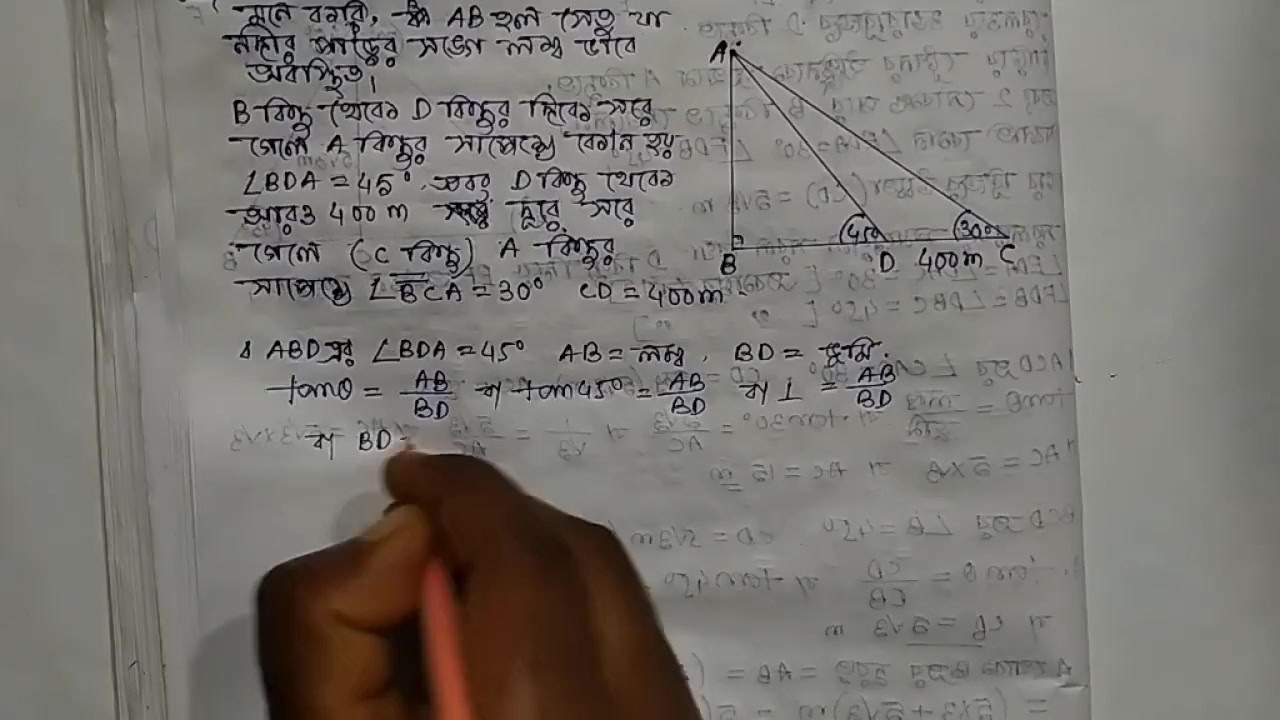 মনে করি, AB হল সেতু যা
নদীর পাড়ের সঙ্গে লম্ব ভাবে
অবস্থিত।
B বিন্দু থেকে D বিন্দুর দিকে সরে
গেলে A বিন্দুর সাপেক্ষে কোন হয়
∠BDA = 45°, এবং D বিন্দু থেকে
আরও 400 m দূরে সরে
গেলে (C বিন্দু) A বিন্দুর
সাপেক্ষে ∠BCA = 30° CD = 400m
A
45°
30°
B
D 400m C
Δ ABD এর ∠BDA = 45° AB = লম্ব, BD = ভূমি.
tanθ = AB/BD বা tan45° = AB/BD বা 1 = AB/BD
বা BD =